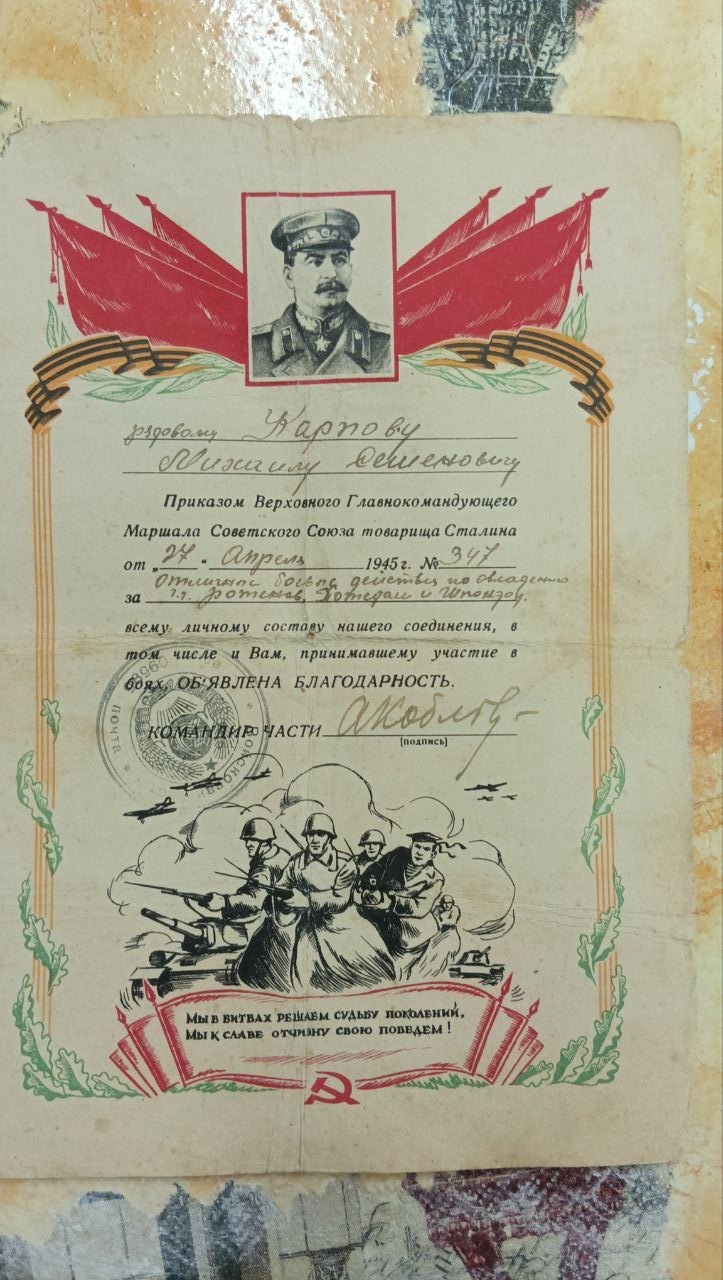 рядовому Карпову
Михаилу Семеновичу
Приказом Верховного Главнокомандующего
Маршала Советского Союза товарища Сталина
от „27" Апреля 1945 г. № 347
Отличные боевые действия по овладению
за г.г. Ратенов, Потсдам и Шпандау.
всему личному составу нашего соединения, в
том числе и Вам, принимавшему участие в
боях, ОБ'ЯВЛЕНА БЛАГОДАРНОСТЬ.
КОМАНДИР ЧАСТИ
(подпись)
* ПОЧТА * ВОЙСКОВАЯ
МЫ В БИТВАХ РЕШАЕМ СУДЬБУ ПОКОЛЕНИЙ,
МЫ К СЛАВЕ ОТЧИЗНУ СВОЮ ПОВЕДЕМ!